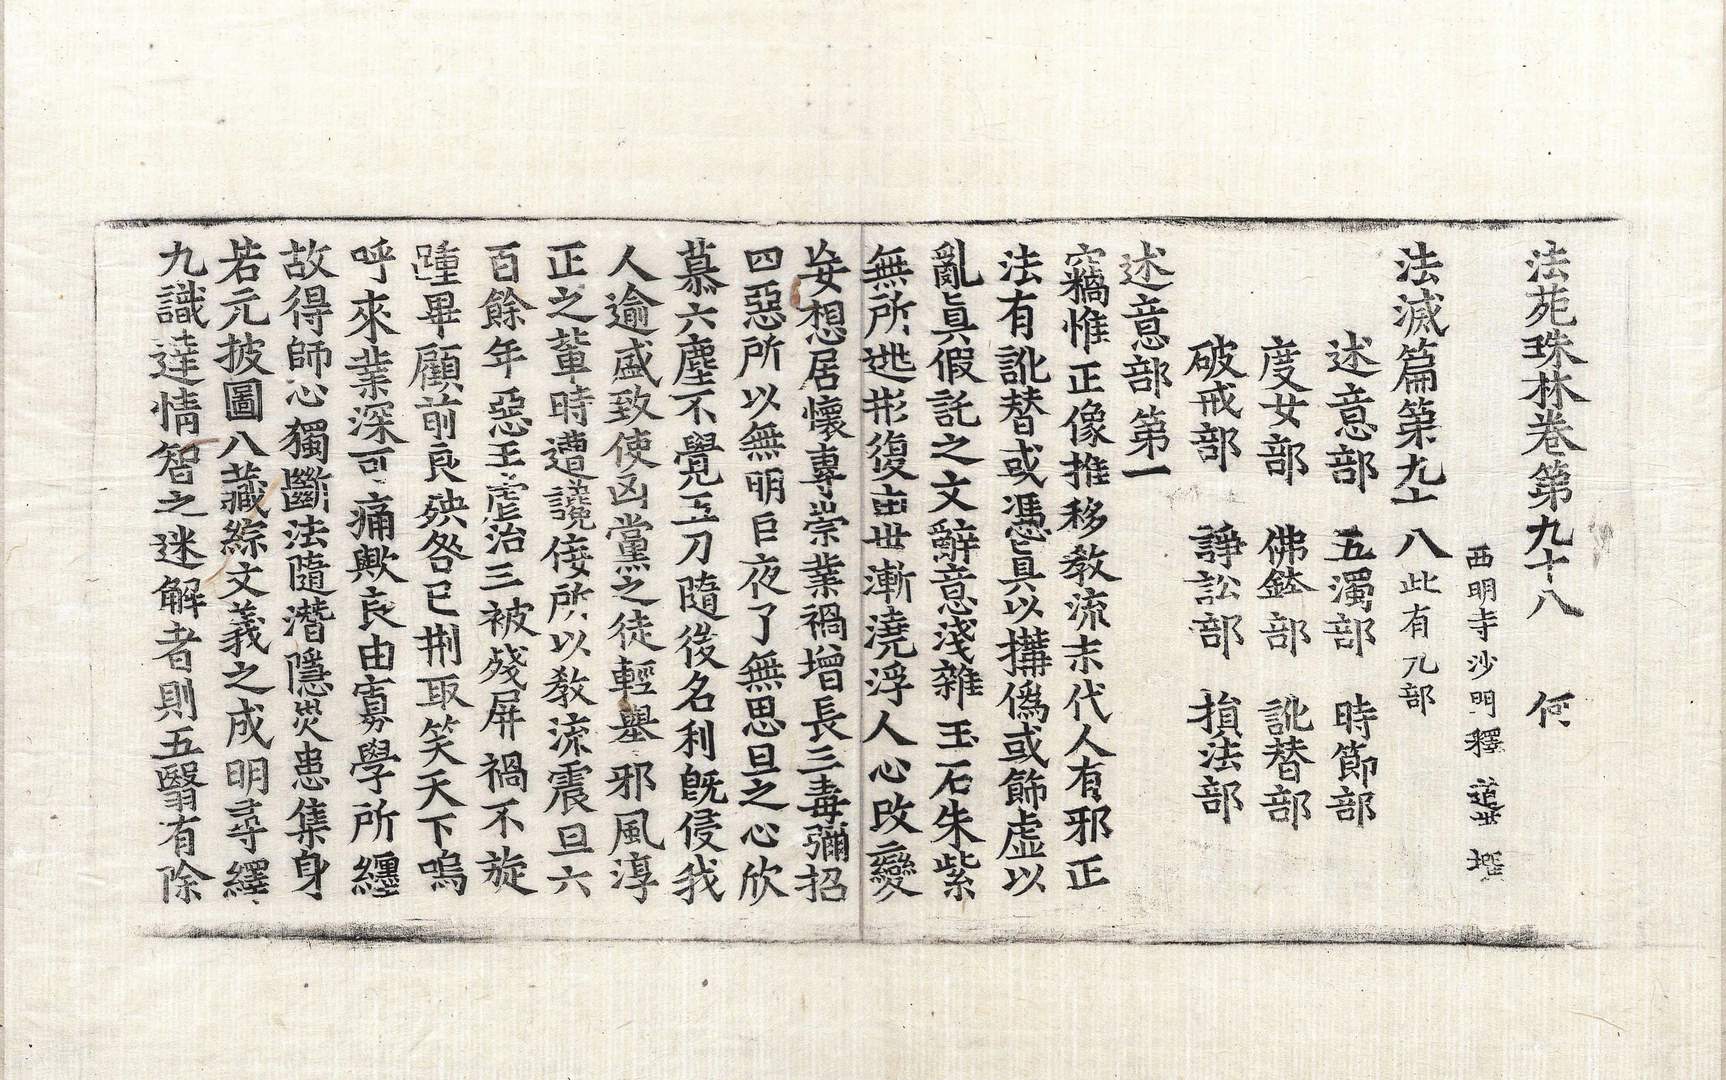 法苑珠林卷第九十八　何
西明寺沙門釋 道世 撰
法滅篇第九十八此有九部
述意部　五濁部　時節部
度女部　佛鉢部　訛替部
破戒部　諍訟部　損法部
述意部第一
竊惟正像推移教流末代人有邪正
法有訛替或憑眞以搆僞或飾虛以
亂眞假託之文辭意淺雜玉石朱紫
無所逃形復由世漸澆浮人心改變
妄想居懷專崇業禍增長三毒彌招
四惡所以無明巨夜了無思旦之心欣
慕六塵不覺五刀隨後名利旣侵我
人逾盛致使凶黨之徒輕舉邪風淳
正之軰時遭讒佞所以敎流震旦六
百餘年惡王虐治三被殘屏禍不旋
踵畢顧前良殃咎已刑取笑天下嗚
呼來業深可痛歟良由寡學所纏
故得師心獨斷法隨潛隱災患集身
若元披圖八藏綜文義之成明尋繹
九識達情智之迷解者則五翳有除